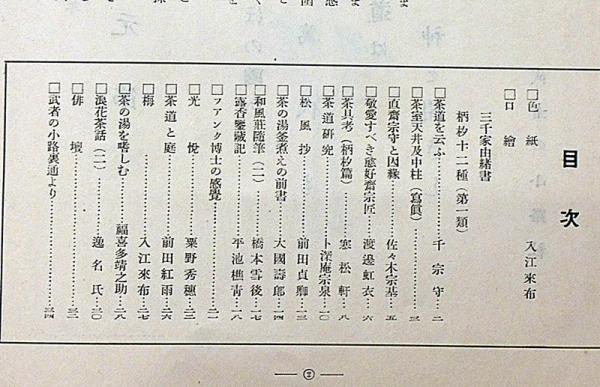 目次
□色紙 入江來布
□口繪
三千家由緒書
柄杓十二種(第一類)
□茶道を云ふ……千宗守…二
□茶室天井及中柱(寫眞)……三
□直齋宗守と因緣……佐々木宗基…五
□敬愛すべき愈好齋宗匠……渡邊虹衣…六
□茶具考(柄杓篇)……寒松軒…八
□茶道研究……卜深庵宗泉…一〇
□松風抄……前田貞卿…一三
□茶の湯釜煮えの前書……大國壽郎…一四
□和風莊隨筆(二)……橋本雪後…一七
□露香鑒藏記……平池樵靑…一八
□フアンク博士の感覺……二一
□光悅……粟野秀穗…二三
□茶道と庭……前田紅雨…二六
□梅……入江來布…二七
□茶の湯を嗜しむ……福喜多靖之助…二八
□浪花茶話(二)……逸名氏…三〇
□俳壇……三二
□武者の小路裏通より……三四